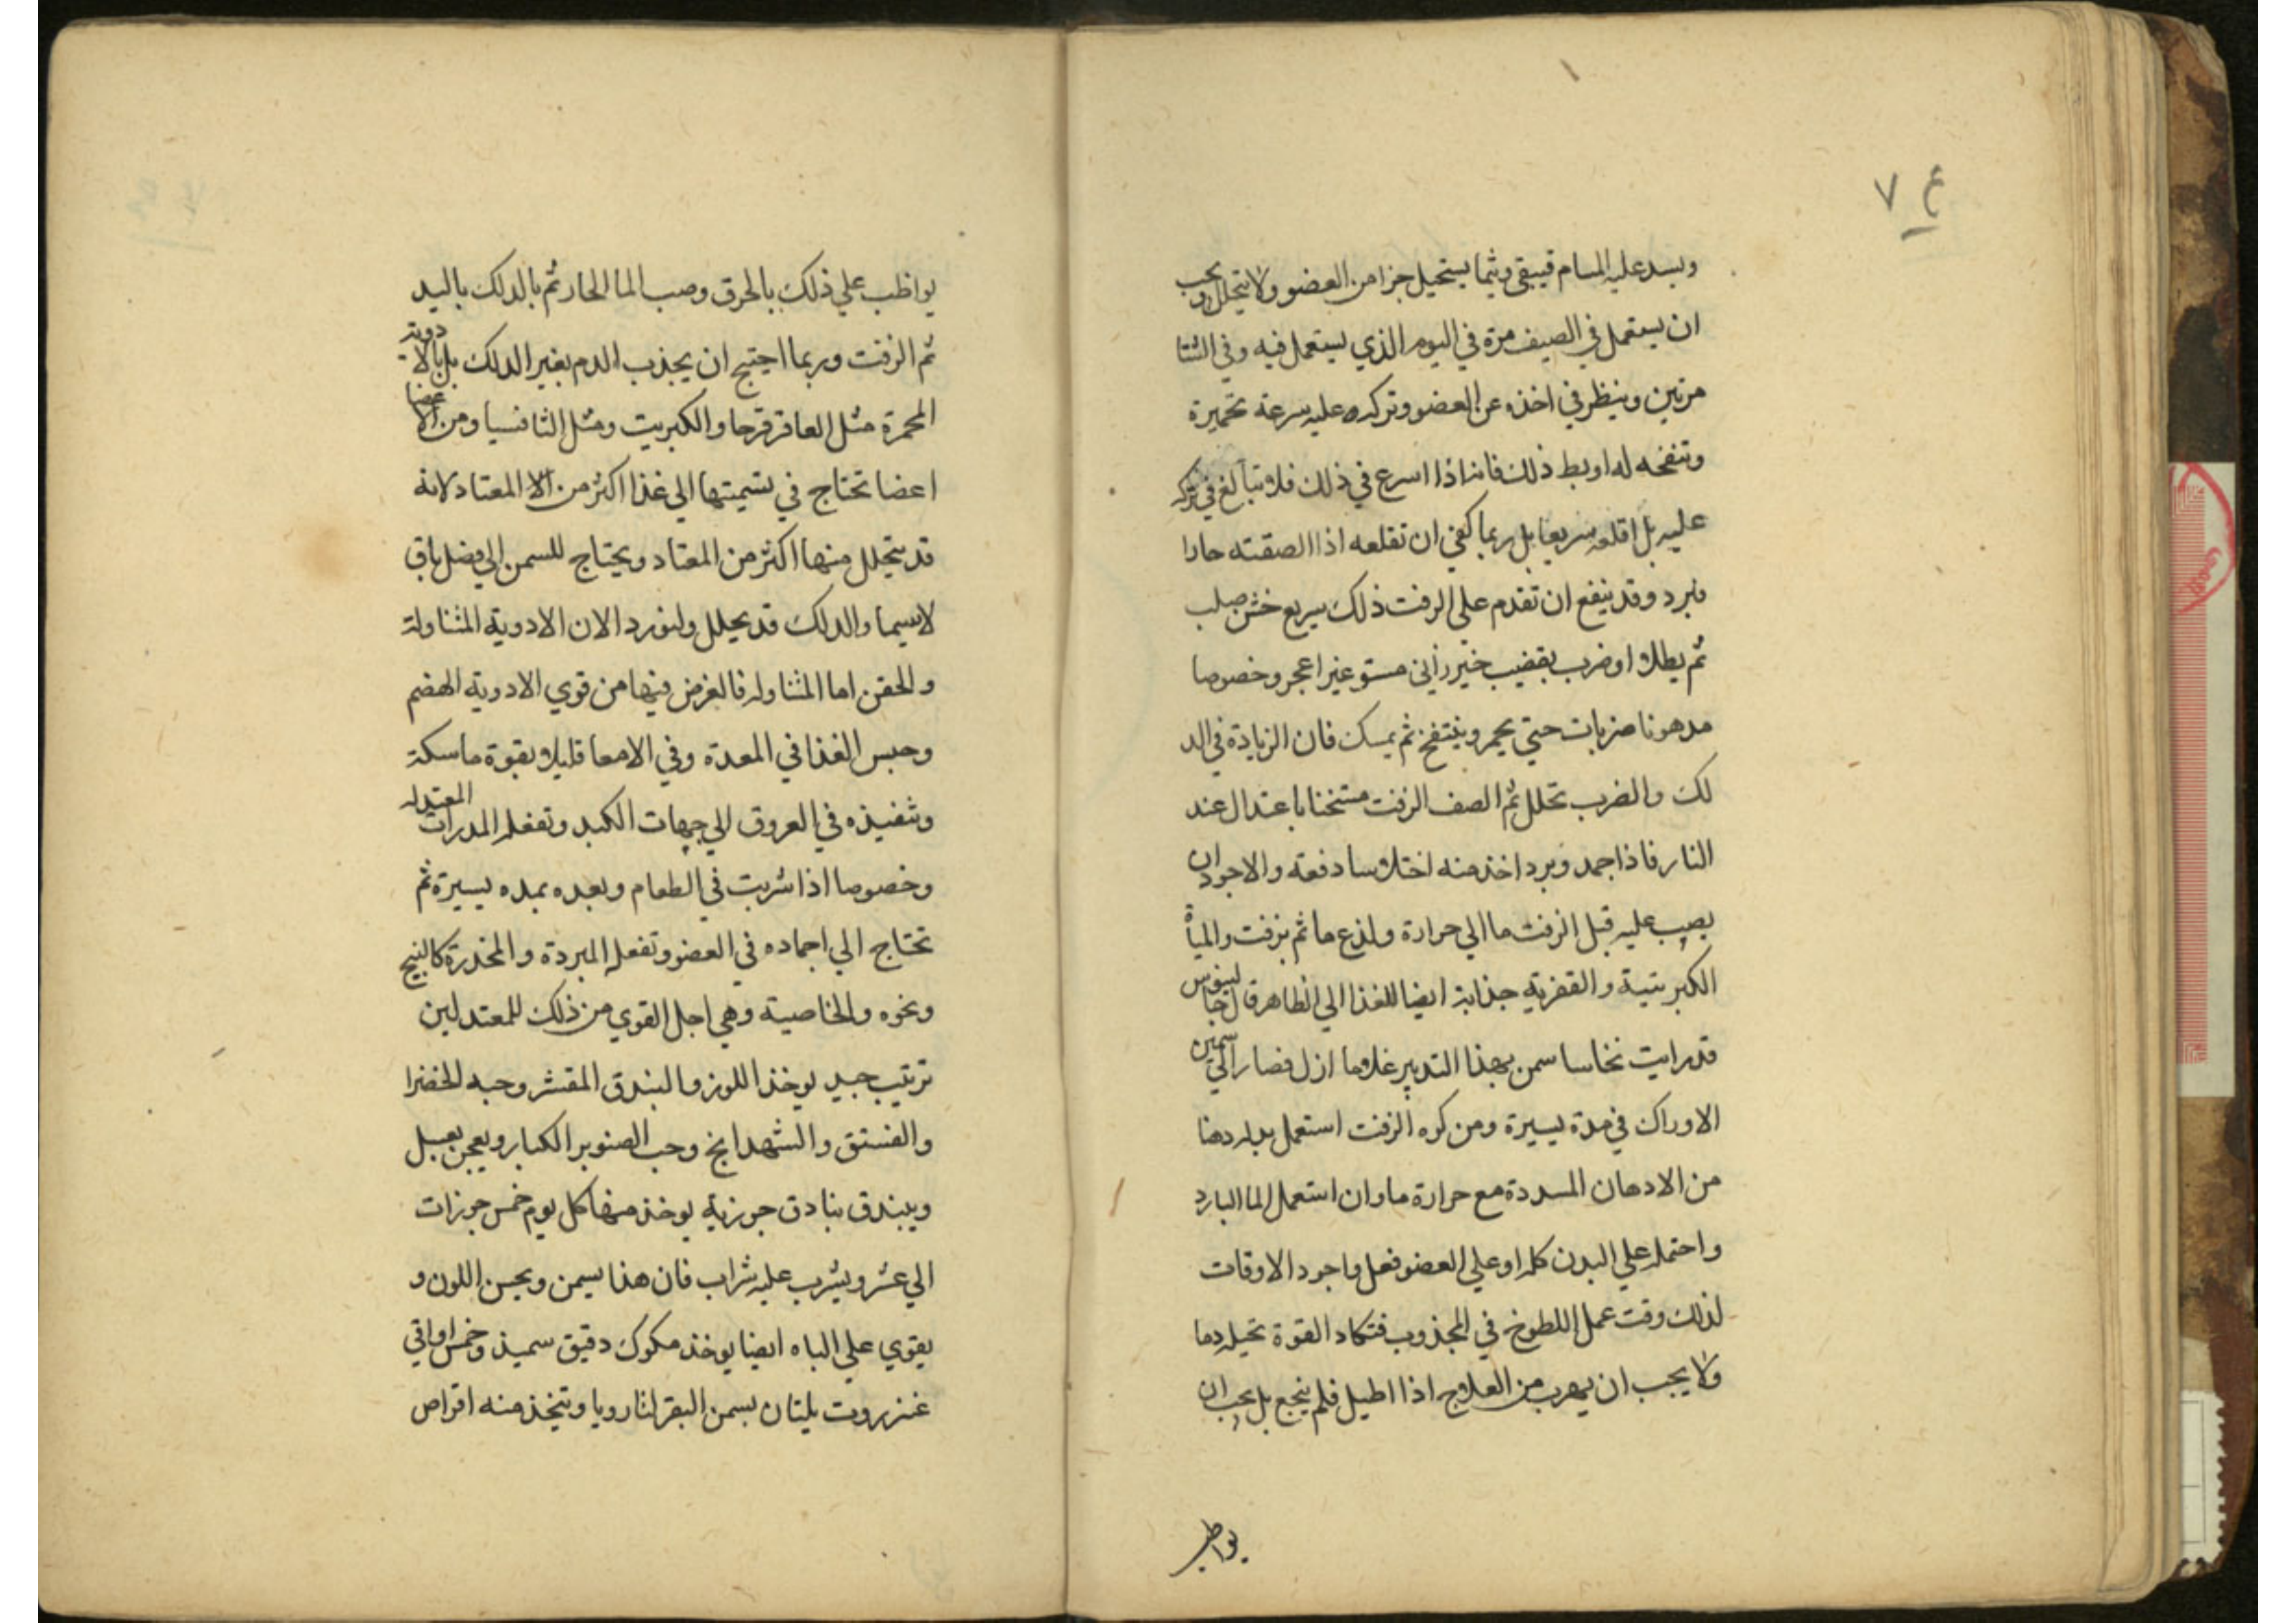 ع ٧
ويسد عليه المسام فيبقى ريثما يستحيل جزا من العضو ولا يتحلل ويجب
ان يستعمل في الصيف مرة في اليوم الذي يستعمل فيه وفي الشتا
مرتين وينظر في اخذه عن العضو وتركه عليه سرعة تحميرة
وتنفخه له اوبط ذلك فانه اذا اسرع في ذلك فلا تبالغ في تركه
عليه بل اقلعه سريعا بل ربما كفى ان تقلعه اذا الصقته حارا
فبرد وقد ينفع ان تقدم على الزفت ذلك سريع خشن صلب
ثم يطلا او ضرب بقضيب خيزراني مستو غير اعجر وخصوصا
مدهونا ضربات حتي يحمر وينتفخ ثم يمسك فان الزيادة في الد
لك والضرب تحلل ثم الصف الزفت مسخنا باعتدال عند
النار فاذا جمد وبرد اخذ منه اختلاسا دفعته والاجود ان
يصب عليه قبل الزفت ما الي حرارة ولذع ما ثم يزفت والمياة
الكبريتية والقفرية جذابة ايضا للغذا الي الظاهر قال جالينوس
قد رايت نخاسا سمن بهذا التدبير غلاما ازل فصار الي سمين
الاوراك في مدة يسيرة ومن كره الزفت استعمل بدله دهنا
من الادهان المسددة مع حرارة ما وان استعمل الما البارد
واحتمله علي البدن كله او علي العضو فعل واجود الاوقات
لذلك وقت عمل اللطوخ في المجذوب فتكاد القوة تحيله دما
ولا يجب ان يهرب من العلاج اذا اطيل فلم ينجع بل يجب ان
يواظب
يواظب علي ذلك بالخرق وصب الما الحار ثم بالدلك باليد
ثم الزفت وربما احتيج ان يجذب الدم بغير الدلك بل بالادوية
المحمرة مثل العاقرقرحا والكبريت ومثل الثافسيا ومن الاعضا
اعضا تحتاج في تسميتها الي غذا اكثر من الا المعتاد لانه
قد يتحلل منها اكثر من المعتاد ويحتاج للسمن الي فضل باق
لاسيما والدلك قد يحلل ولنورد الان الادوية المتناولة
والحقن اما المتناوله فالغرض فيها من قوي الادوية الهضم
وحبس الغذا في المعدة وفي الامعا قليلا بقوة ماسكة
وتنفيذه في العروق الي جهات الكبد وتفعله المدرات المعتدله
وخصوصا اذا شربت في الطعام وبعده بمده يسيرة ثم
تحتاج الي اجماده في العضو وتفعله المبردة والمخدرة كالبنج
ونحوه والخاصية وهي اجل القوي من ذلك للمعتدلين
ترتيب جيد يوخذ اللوز والبندق المقشر وحبه الخضرا
والفستق والشهدانج وحب الصنوبر الكبار ويعجن بعسل
ويبندق بنادق جوزية يوخذ منها كل يوم خمس جوزات
الي عشر ويشرب عليه شراب فان هذا يسمن ويحسن اللون و
يقوي علي الباه ايضا يوخذ مكوك دقيق سميذ وخمس اواقي
عنزروت يلتان بسمن البقر لتا رويا وتتخذ منه اقراص